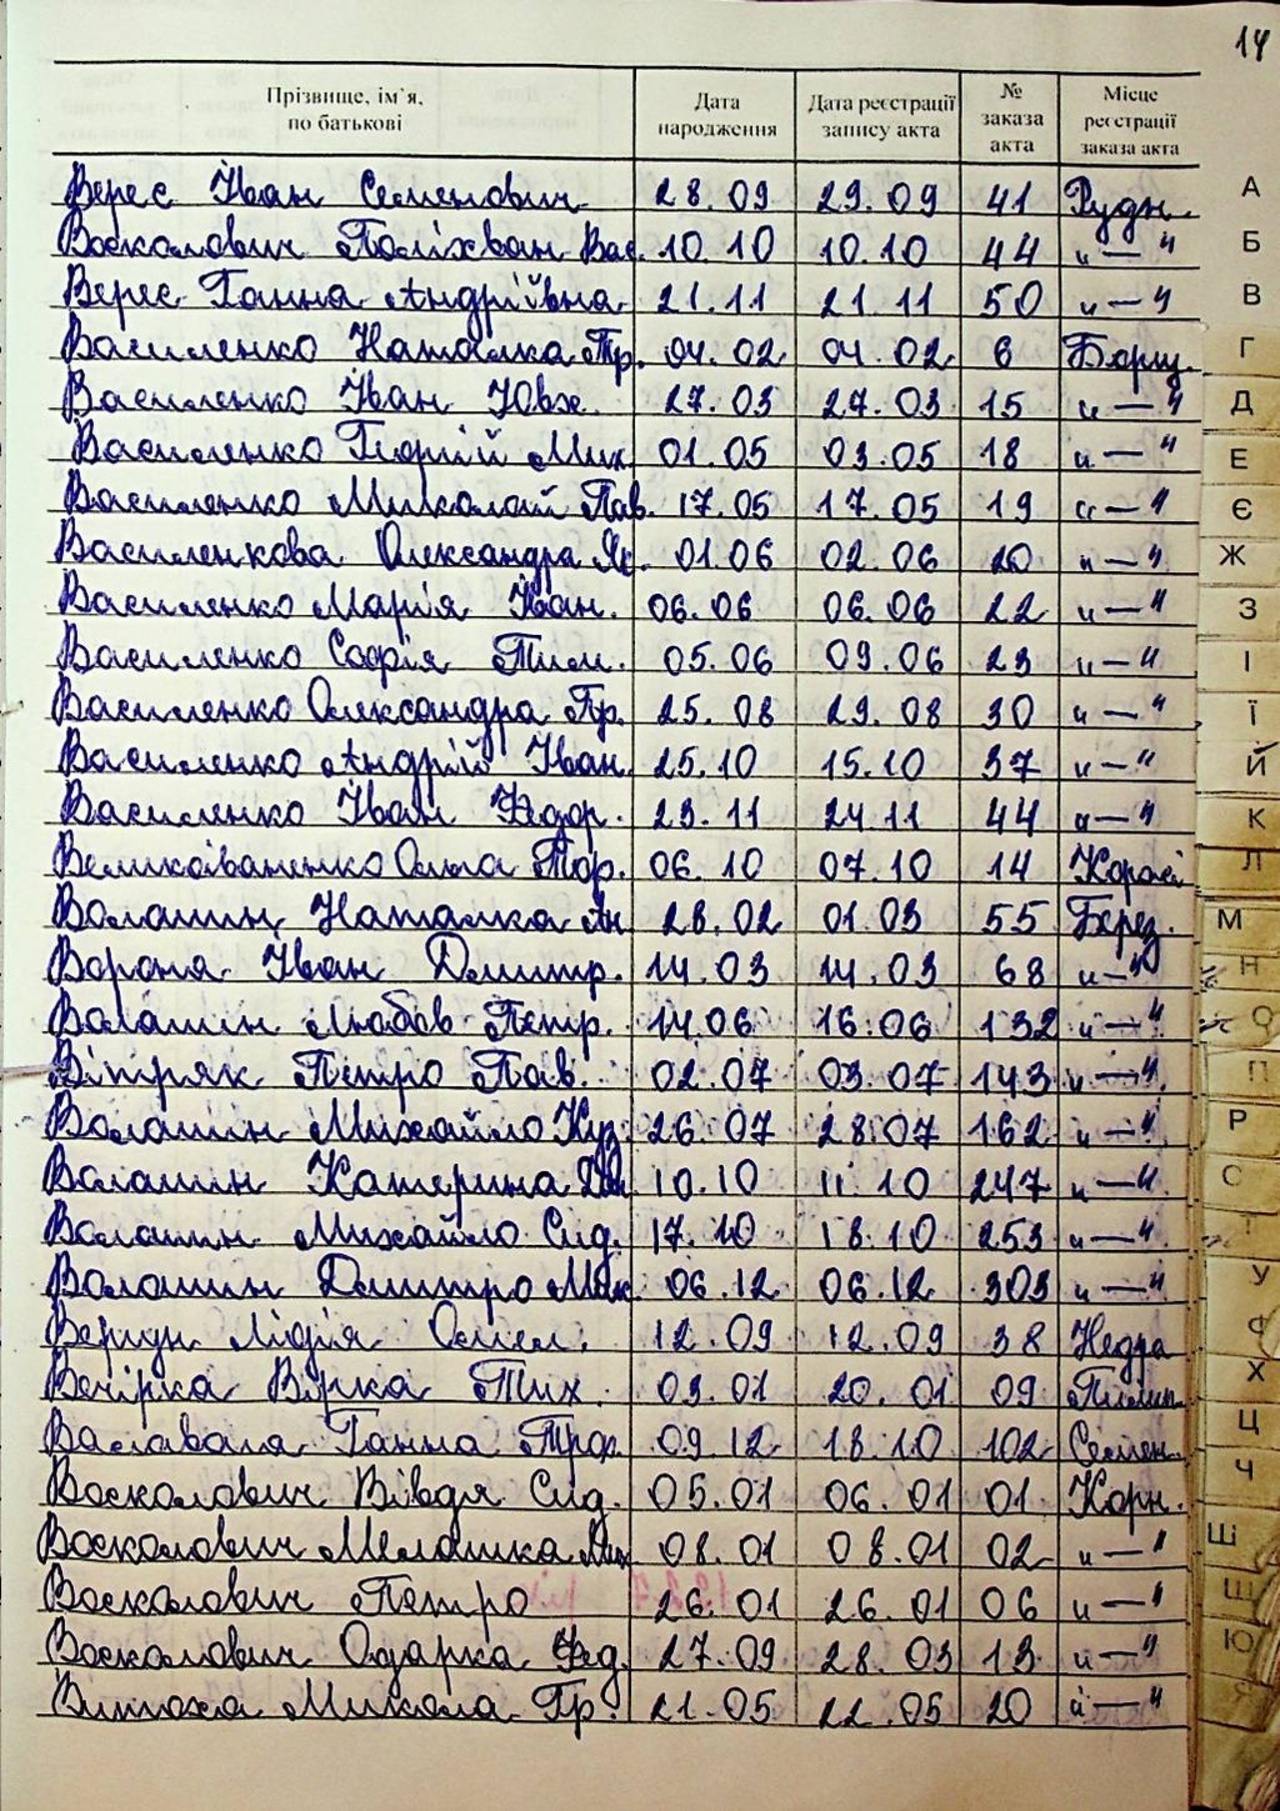 14
Прізвище, ім'я, по батькові Дата народження Дата реєстрації запису акта № заказа акта Місце реєстрації заказа акта
Верес Іван Семенович 28.09 29.09 41 Рудн. А
Воскалович Вас. 10.10 10.10 44 "—" Б
Верес Ганна Андріївна 21.11 21.11 50 "—" В
Василенко Наталка Гр. 04.02 04.02 6 Борщ. Г
Василенко Іван Ювх. 27.03 27.03 15 "—" Д
Василенко Георгій Мих. 01.05 03.05 18 "—" Е
Василенко Миколай Пав. 17.05 17.05 19 "—" Є
Василенкова Олександра Як. 01.06 02.06 20 "—" Ж
Василенко Марія Іван. 06.06 06.06 22 "—" З
Василенко Софія Тим. 05.06 09.06 23 "—" І
Василенко Олександра Гр. 25.08 29.08 30 "—" Ї
Василенко Андрій Іван. 25.10 15.10 37 "—" Й
Василенко Іван Федор. 23.11 24.11 44 "—" К
Великоіваненко Ольга 06.10 07.10 14 Л
Волошин Наталка Ан. 28.02 01.03 55 Берез. М
Ворона Іван Дмитр. 14.03 14.03 68 "—" Н
Волошин Любов Петр. 14.06 16.06 132 "—" О
Вітряк Петро Пав. 02.07 03.07 143 "—" П
Волошин Михайло Куз. 26.07 28.07 162 "—" Р
Волошин Катерина 10.10 11.10 247 "—" С
Волошин Михайло Сид. 17.10 18.10 253 "—" Т
Волошин Дмитро Мак. 06.12 06.12 303 "—" У
Лідія Омел. 12.09 12.09 38 Недра Ф
Вечірка Вірка Тих. 03.01 20.01 09 Х
Ганна 09.12 18.10 102 Семен. Ц
Воскалович Вівдя Сид. 05.01 06.01 01 Корн. Ч
Воскалович Мелашка 08.01 08.01 02 "—" Ш
Воскалович Петро 26.01 26.01 06 "—" Щ
Воскалович Одарка Фед. 27.09 28.03 13 "—" Ю
Микола Гр. 21.05 22.05 20 "—" Я